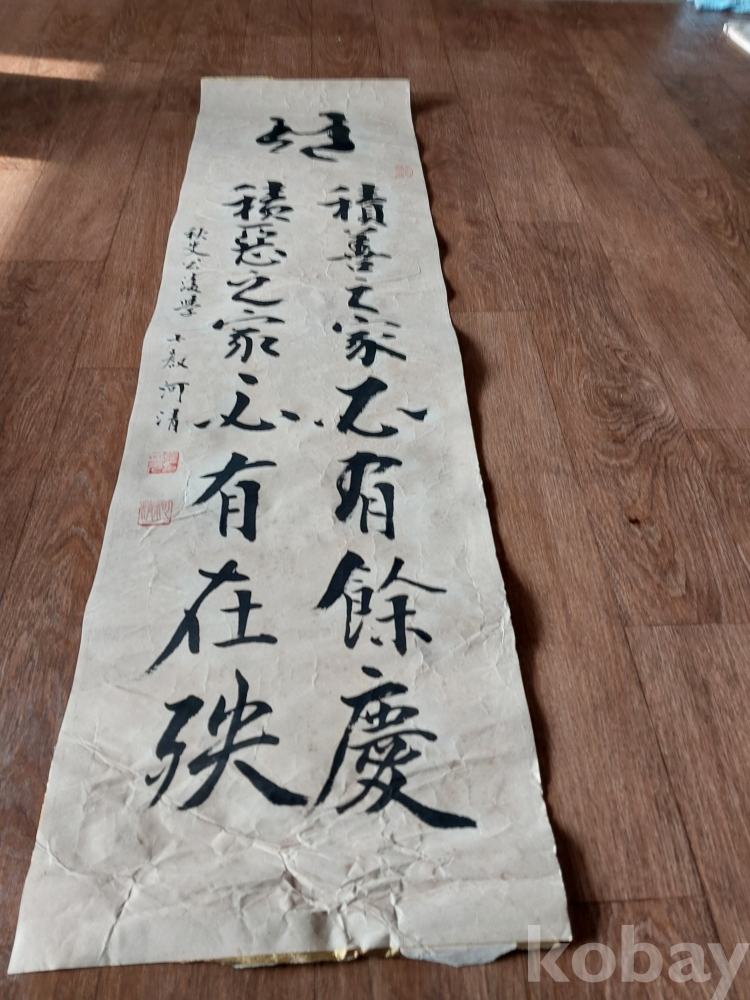 積善之家必有餘慶
積惡之家必有在殃
河清
kobay